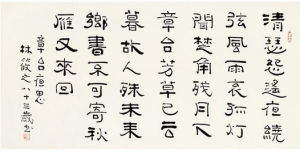 清瑟怨遥夜繞
弦風雨哀孤灯
聞楚角残月下
章台芳草已云
暮故人殊未来
鄉書不可寄秋
雁又南回
章台夜思
林筱之八十三歲書